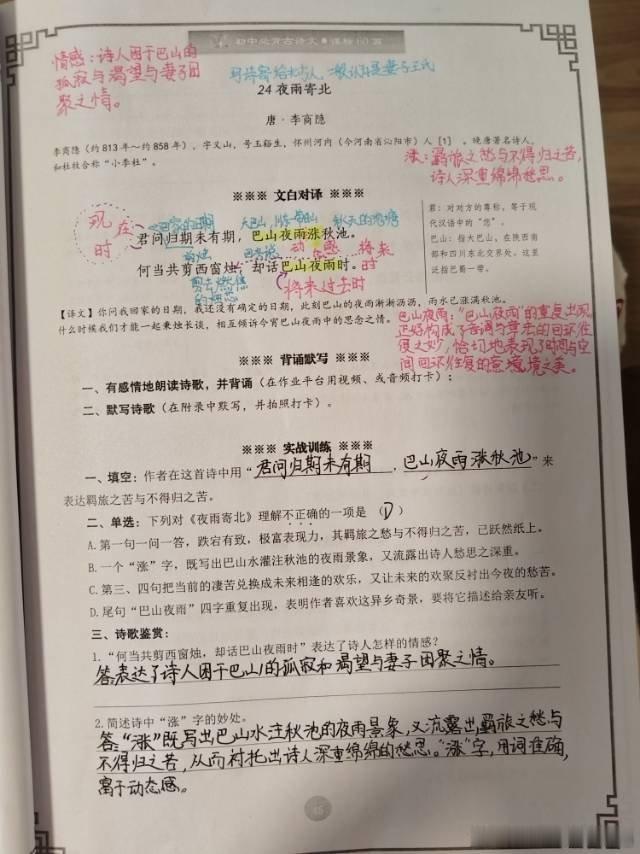 初中必背古诗文●课标60篇
情感：诗人困于巴山的
孤寂与渴望与妻子团
聚之情。
24 夜雨寄北
唐·李商隐
李商隐（约813年～约858年），字义山，号玉谿生，怀州河内（今河南省沁阳市）人［1］。晚唐著名诗人，
和杜牧合称“小李杜”。
涨：羁旅之愁与不得归之苦，
诗人深重绵绵愁思。
※※※ 文白对译 ※※※
现在
时
回家的日期
秋天的池塘
君问归期未有期，巴山夜雨涨秋池。
动感
将来
何当共剪西窗烛，却话巴山夜雨时。
时
将来过去时
君：对对方的尊称，等于现
代汉语中的“您”。
巴山：指大巴山，在陕西南
部和四川东北交界处。这里
泛指巴蜀一带。
【译文】你问我回家的日期，我还没有确定的日期，此刻巴山的夜雨淅淅沥沥，雨水已涨满秋池。
什么时候我们才能一起秉烛长谈，相互倾诉今宵巴山夜雨中的思念之情。
巴山夜雨：“巴山夜雨”的重复出现，
正好构成了音调与章法的回环往
复之妙，恰切地表现了时间与空
间回环往复的意境之美。
※※※ 背诵默写 ※※※
一、有感情地朗读诗歌，并背诵（在作业平台用视频、或音频打卡）；
二、默写诗歌（在附录中默写，并拍照打卡）。
※※※ 实战训练 ※※※
一、填空：作者在这首诗中用“君问归期未有期，巴山夜雨涨秋池”来
表达羁旅之苦与不得归之苦。
二、单选：下列对《夜雨寄北》理解不正确的一项是（D）
A.第一句一问一答，跌宕有致，极富表现力，其羁旅之愁与不得归之苦，已跃然纸上。
B.一个“涨”字，既写出巴山水灌注秋池的夜雨景象，又流露出诗人愁思之深重。
C.第三、四句把当前的凄苦兑换成未来相逢的欢乐，又让未来的欢聚反衬出今夜的愁苦。
D.尾句“巴山夜雨”四字重复出现，表明作者喜欢这异乡奇景，要将它描述给亲友听。
三、诗歌鉴赏：
1.“何当共剪西窗烛，却话巴山夜雨时”表达了诗人怎样的情感？
答表达了诗人困于巴山的孤寂和渴望与妻子团聚之情。
2.简述诗中“涨”字的妙处。
答“涨”既写出巴山水注秋池的夜雨景象，又流露出羁旅之愁与
不得归之苦，从而衬托出诗人深重绵绵的愁思。“涨”字，用词准确，
富于动态感。
45